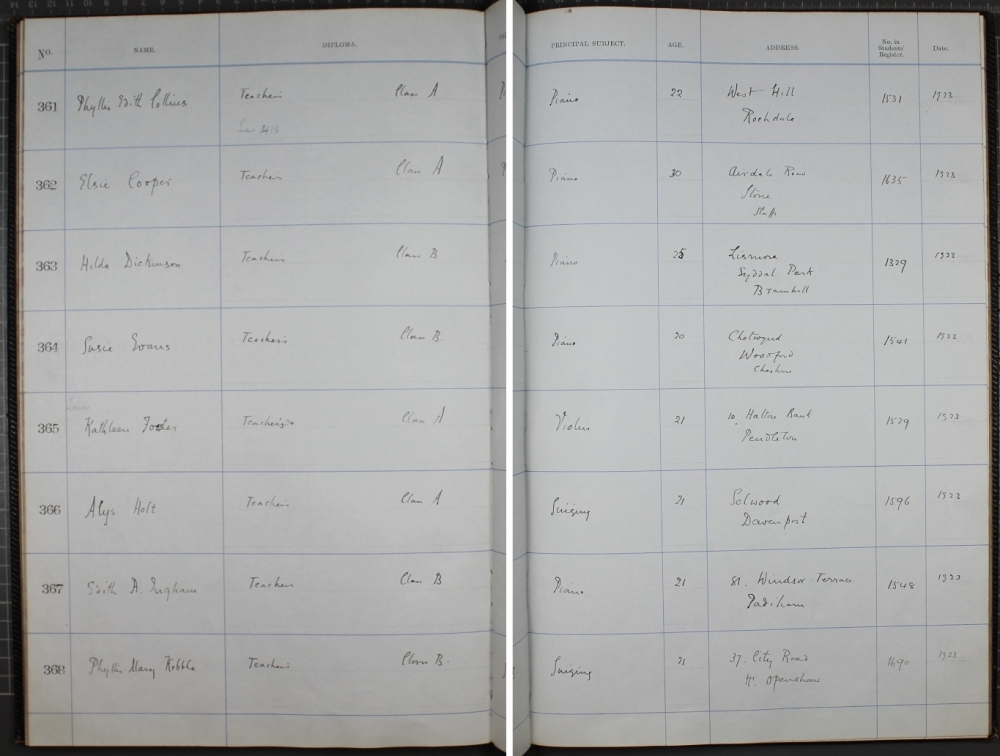 No. NAME. DIPLOMA. PRINCIPAL SUBJECT. AGE. ADDRESS. No. in Students' Register. Date.
361 Phyllis Edith Collins Teacher's Class A Piano 22 West Hill 1531 1923
Rochdale
362 Elsie Cooper Teacher's Class A Piano 30 Airdale Road 1635 1923
Stone
Staffs
363 Hilda Dickinson Teacher's Class B Piano 25 Lismore 1329 1923
Syddal Park
Bramhall
364 Susie Evans Teacher's Class B. Piano 20 Chetwynd 1541 1923
Woodford
Cheshire
365 Kathleen Foster Teacher's Class A Violin 21 10, Halton Bank 1529 1923
Pendleton
366 Alys Holt Teacher's Class A Singing 21 Selwood 1596 1923
Davenport
367 Edith A. Ingham Teachers Class B Piano 21 81. Windsor Terrace 1548 1923
Padiham
368 Phyllis Mary Kebble Teacher's Class B. Singing 21 37. City Road 1690 1923
Hr. Openshaw